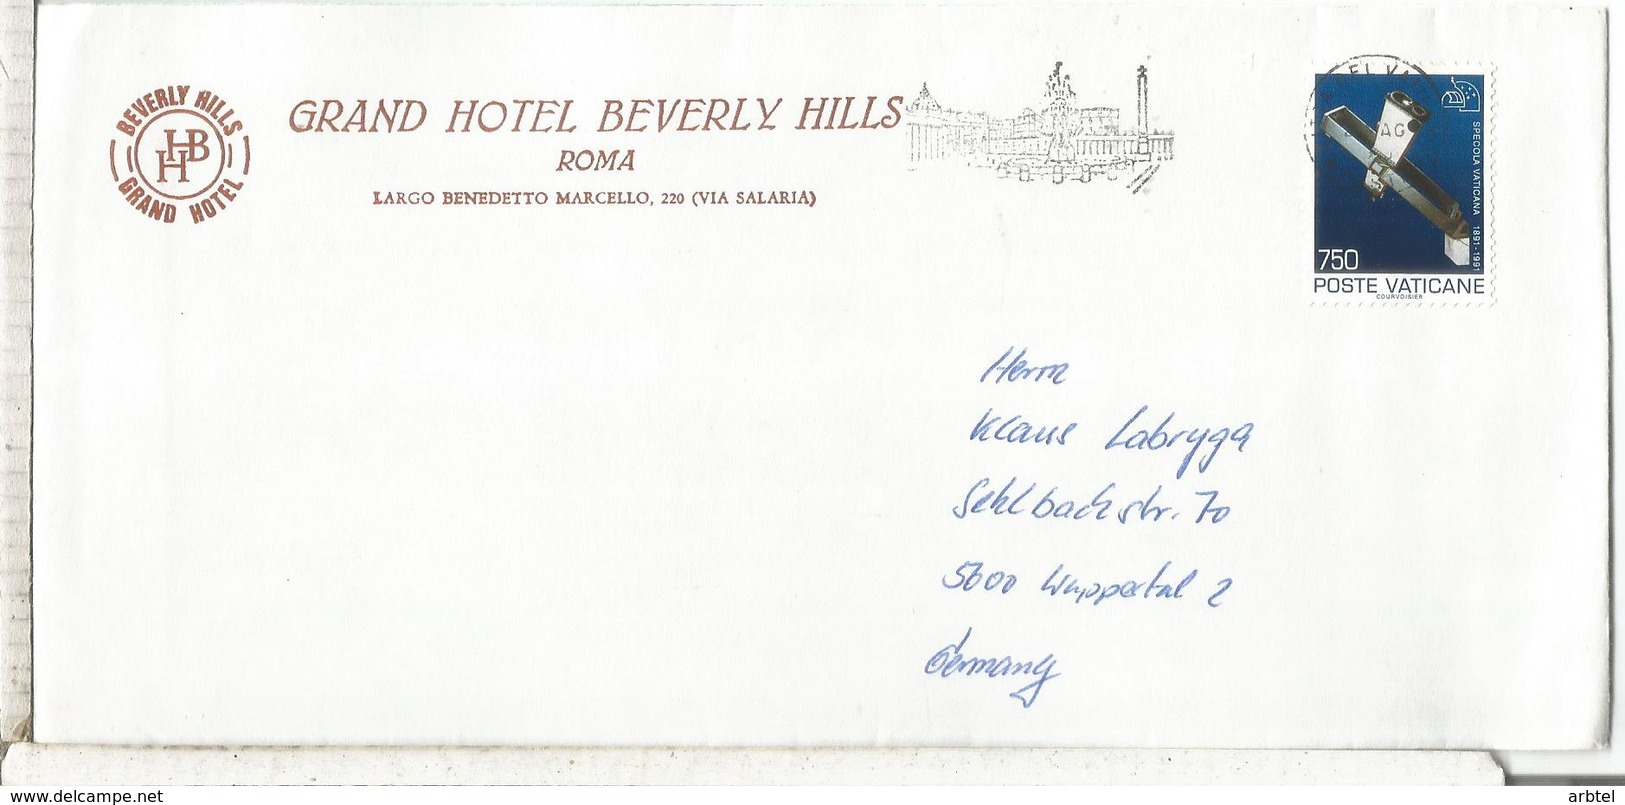 BEVERLY HILLS
HBH
GRAND HOTEL
GRAND HOTEL BEVERLY HILLS
ROMA
LARGO BENEDETTO MARCELLO, 220 (VIA SALARIA)
AG
SPECOLA VATICANA 1891-1991
750
POSTE VATICANE
COURVOISIER
Herrn
Klaus Labryga
Sehlbachstr. 70
5600 Wuppertal 2
Germany
www.delcampe.net
arbtel